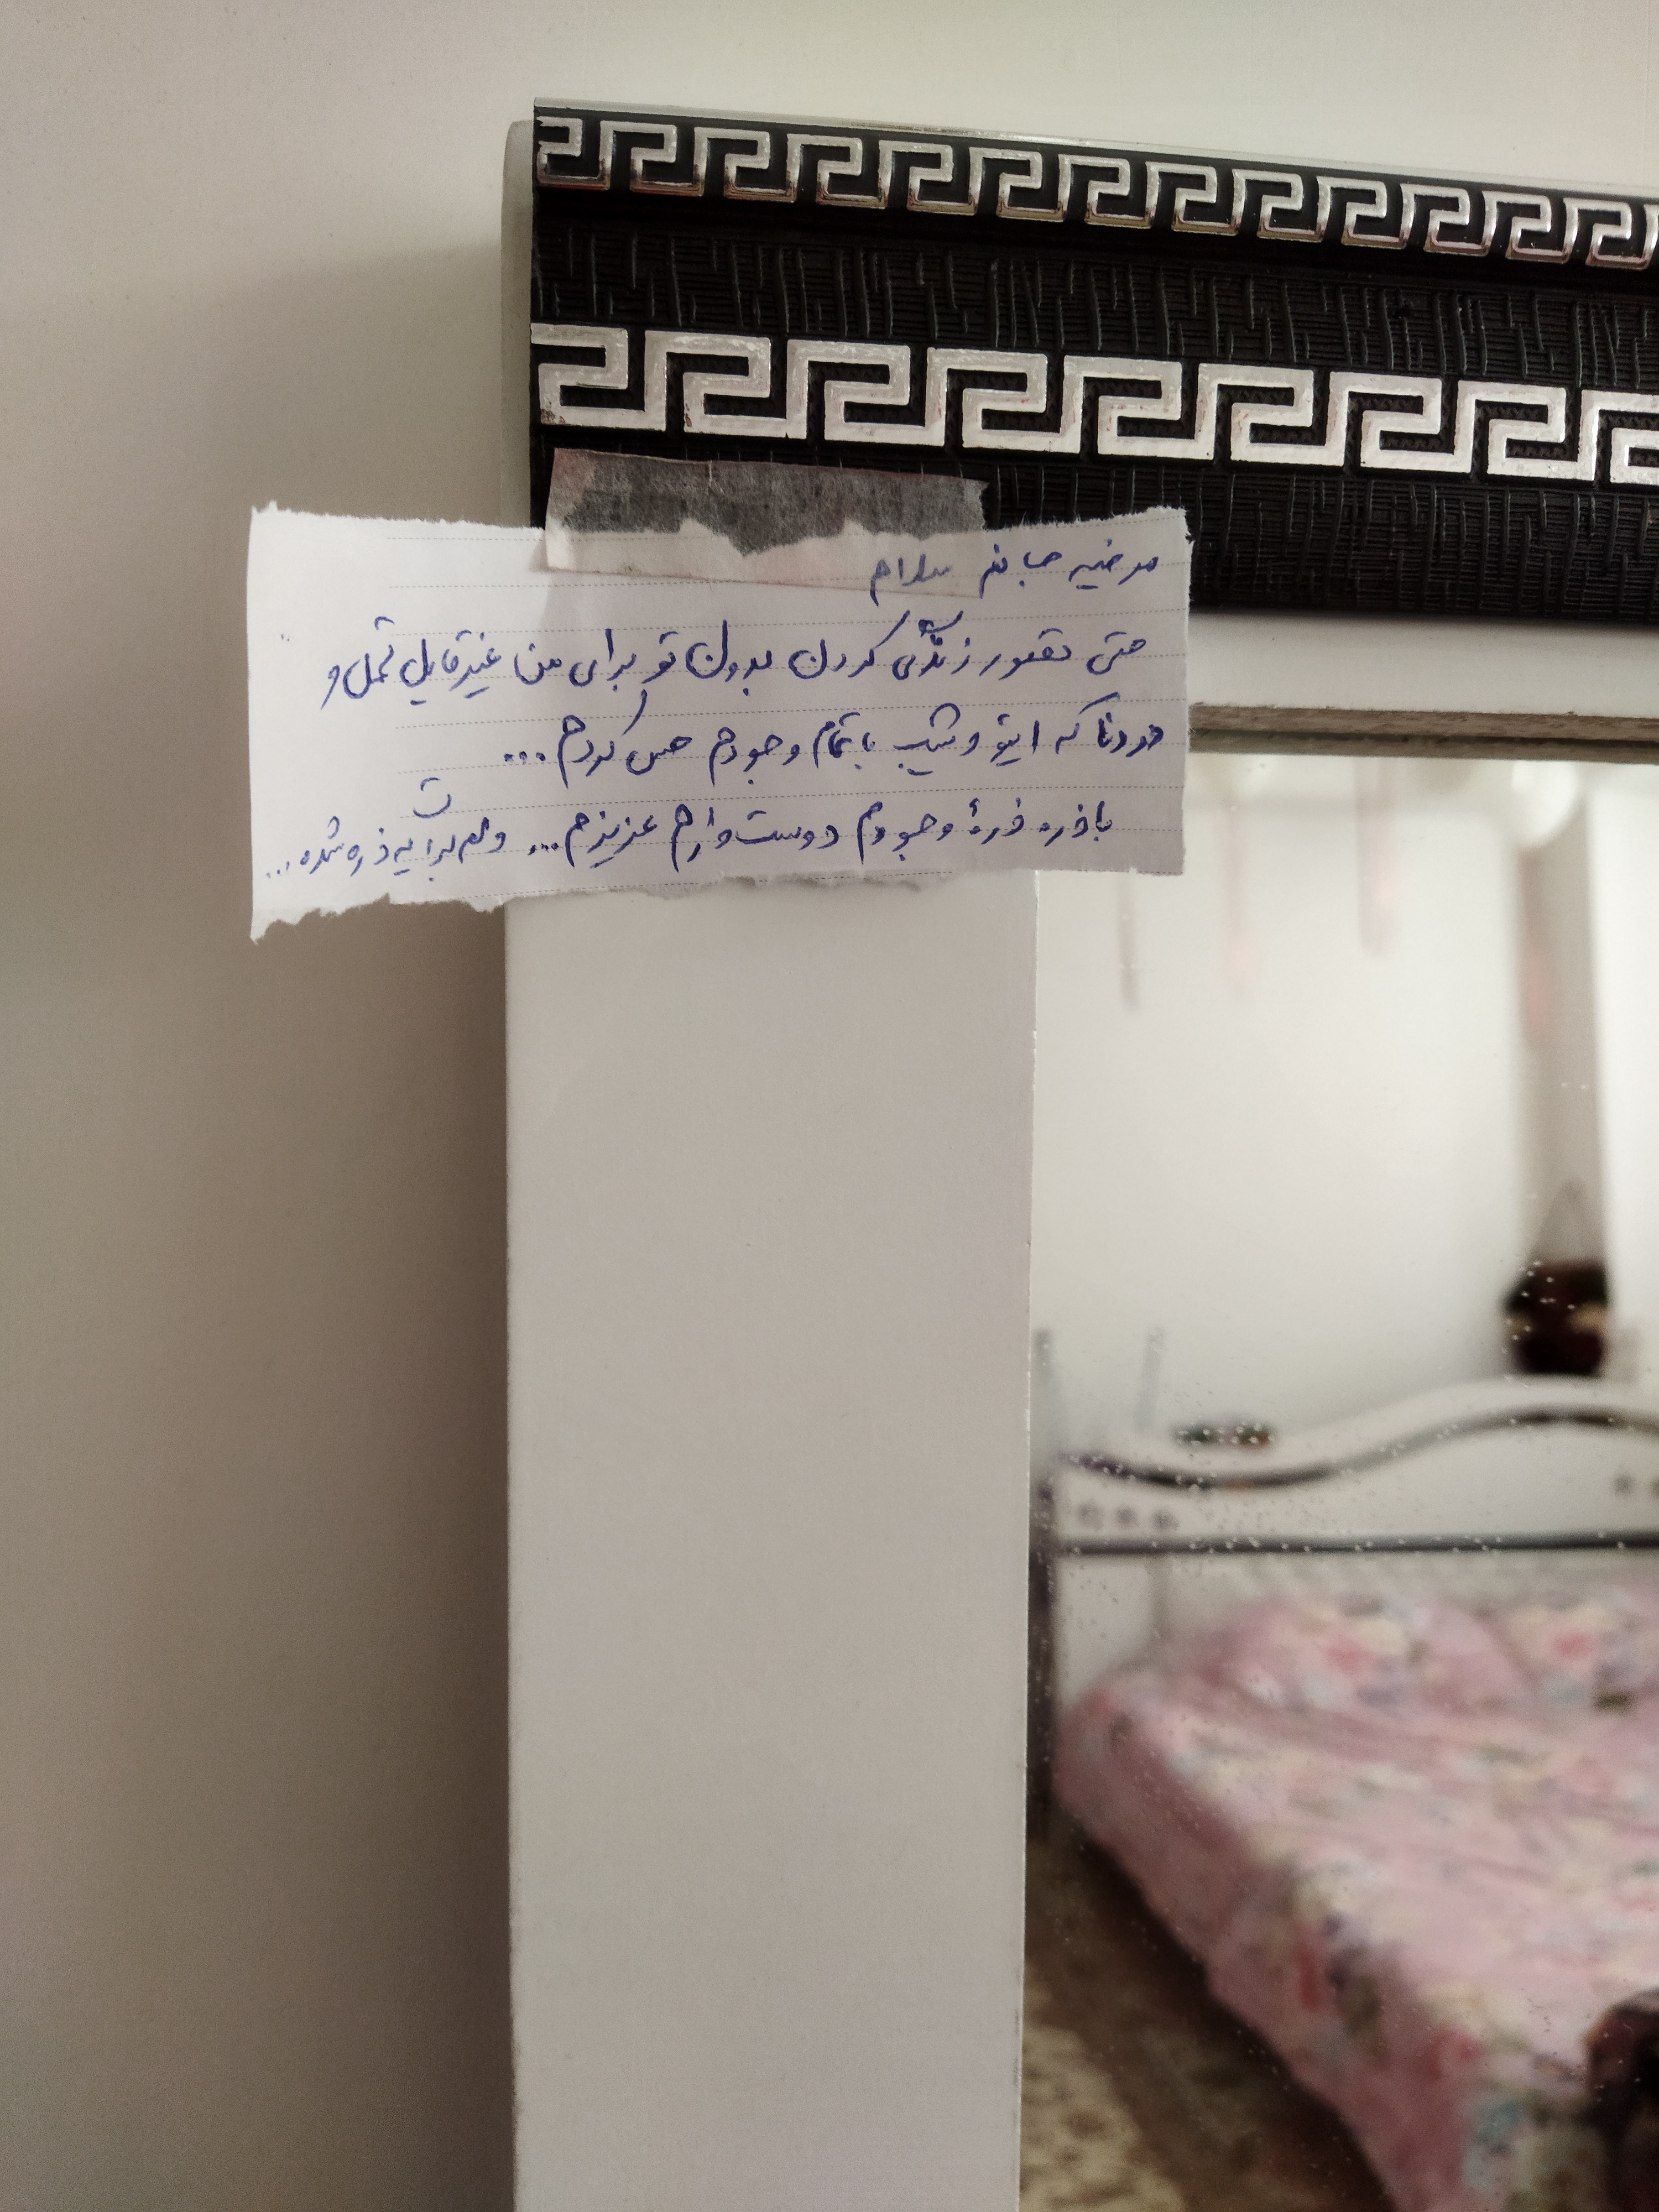 مرضیه جانم سلام
حتی تصور زندگی کردن بدون تو برای من غیرقابل تحمل و
دردناکه اینو دیشب با تمام وجودم حس کردم ...
با ذره ذرهٔ وجودم دوست دارم عزیزم ... دلم برات یه ذره شده ...